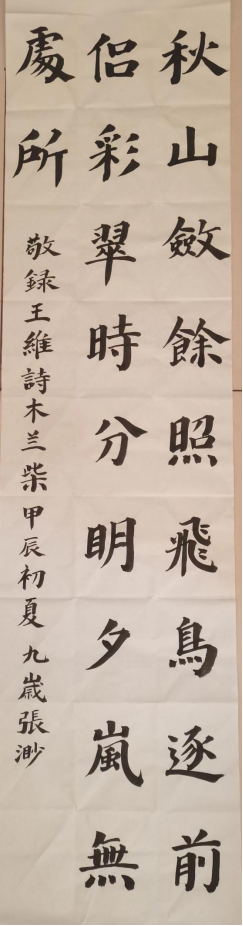 秋山斂餘照飛鳥逐前
侶彩翠時分明夕嵐無
處所
敬録王維詩木兰柴甲辰初夏九歲張渺